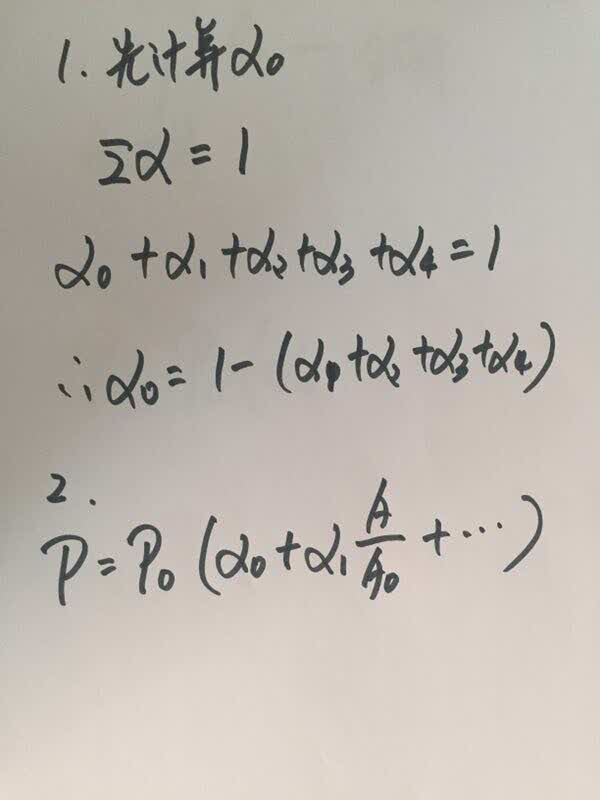 1. 先计算α₀
Σα = 1
α₀ + α₁ + α₂ + α₃ + α₄ = 1
∴ α₀ = 1 - (α₁ + α₂ + α₃ + α₄)
2.
P = P₀ (α₀ + α₁ A/A₀ + ···)